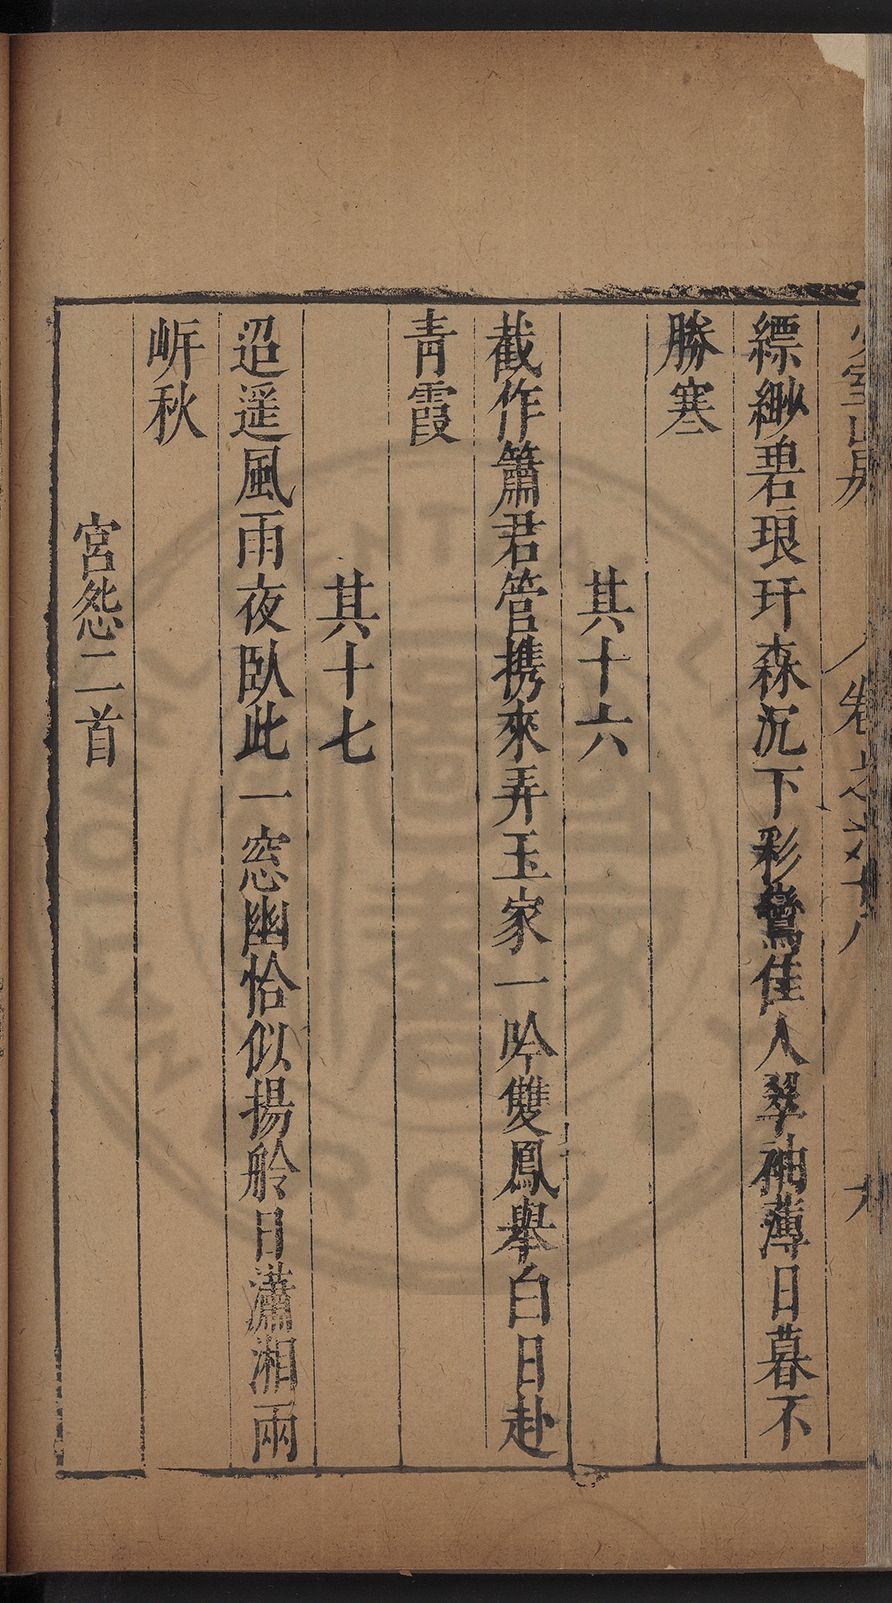 少室山房 卷之六十八 九
縹緲碧琅玕森沉下彩鸞佳人翠袖薄日暮不
勝寒
其十六
截作簫君管携來弄玉家一吟雙鳳舉白日赴
青霞
其十七
迢遥風雨夜臥此一窓幽恰似揚舲日瀟湘兩
㟁秋
宮怨二首